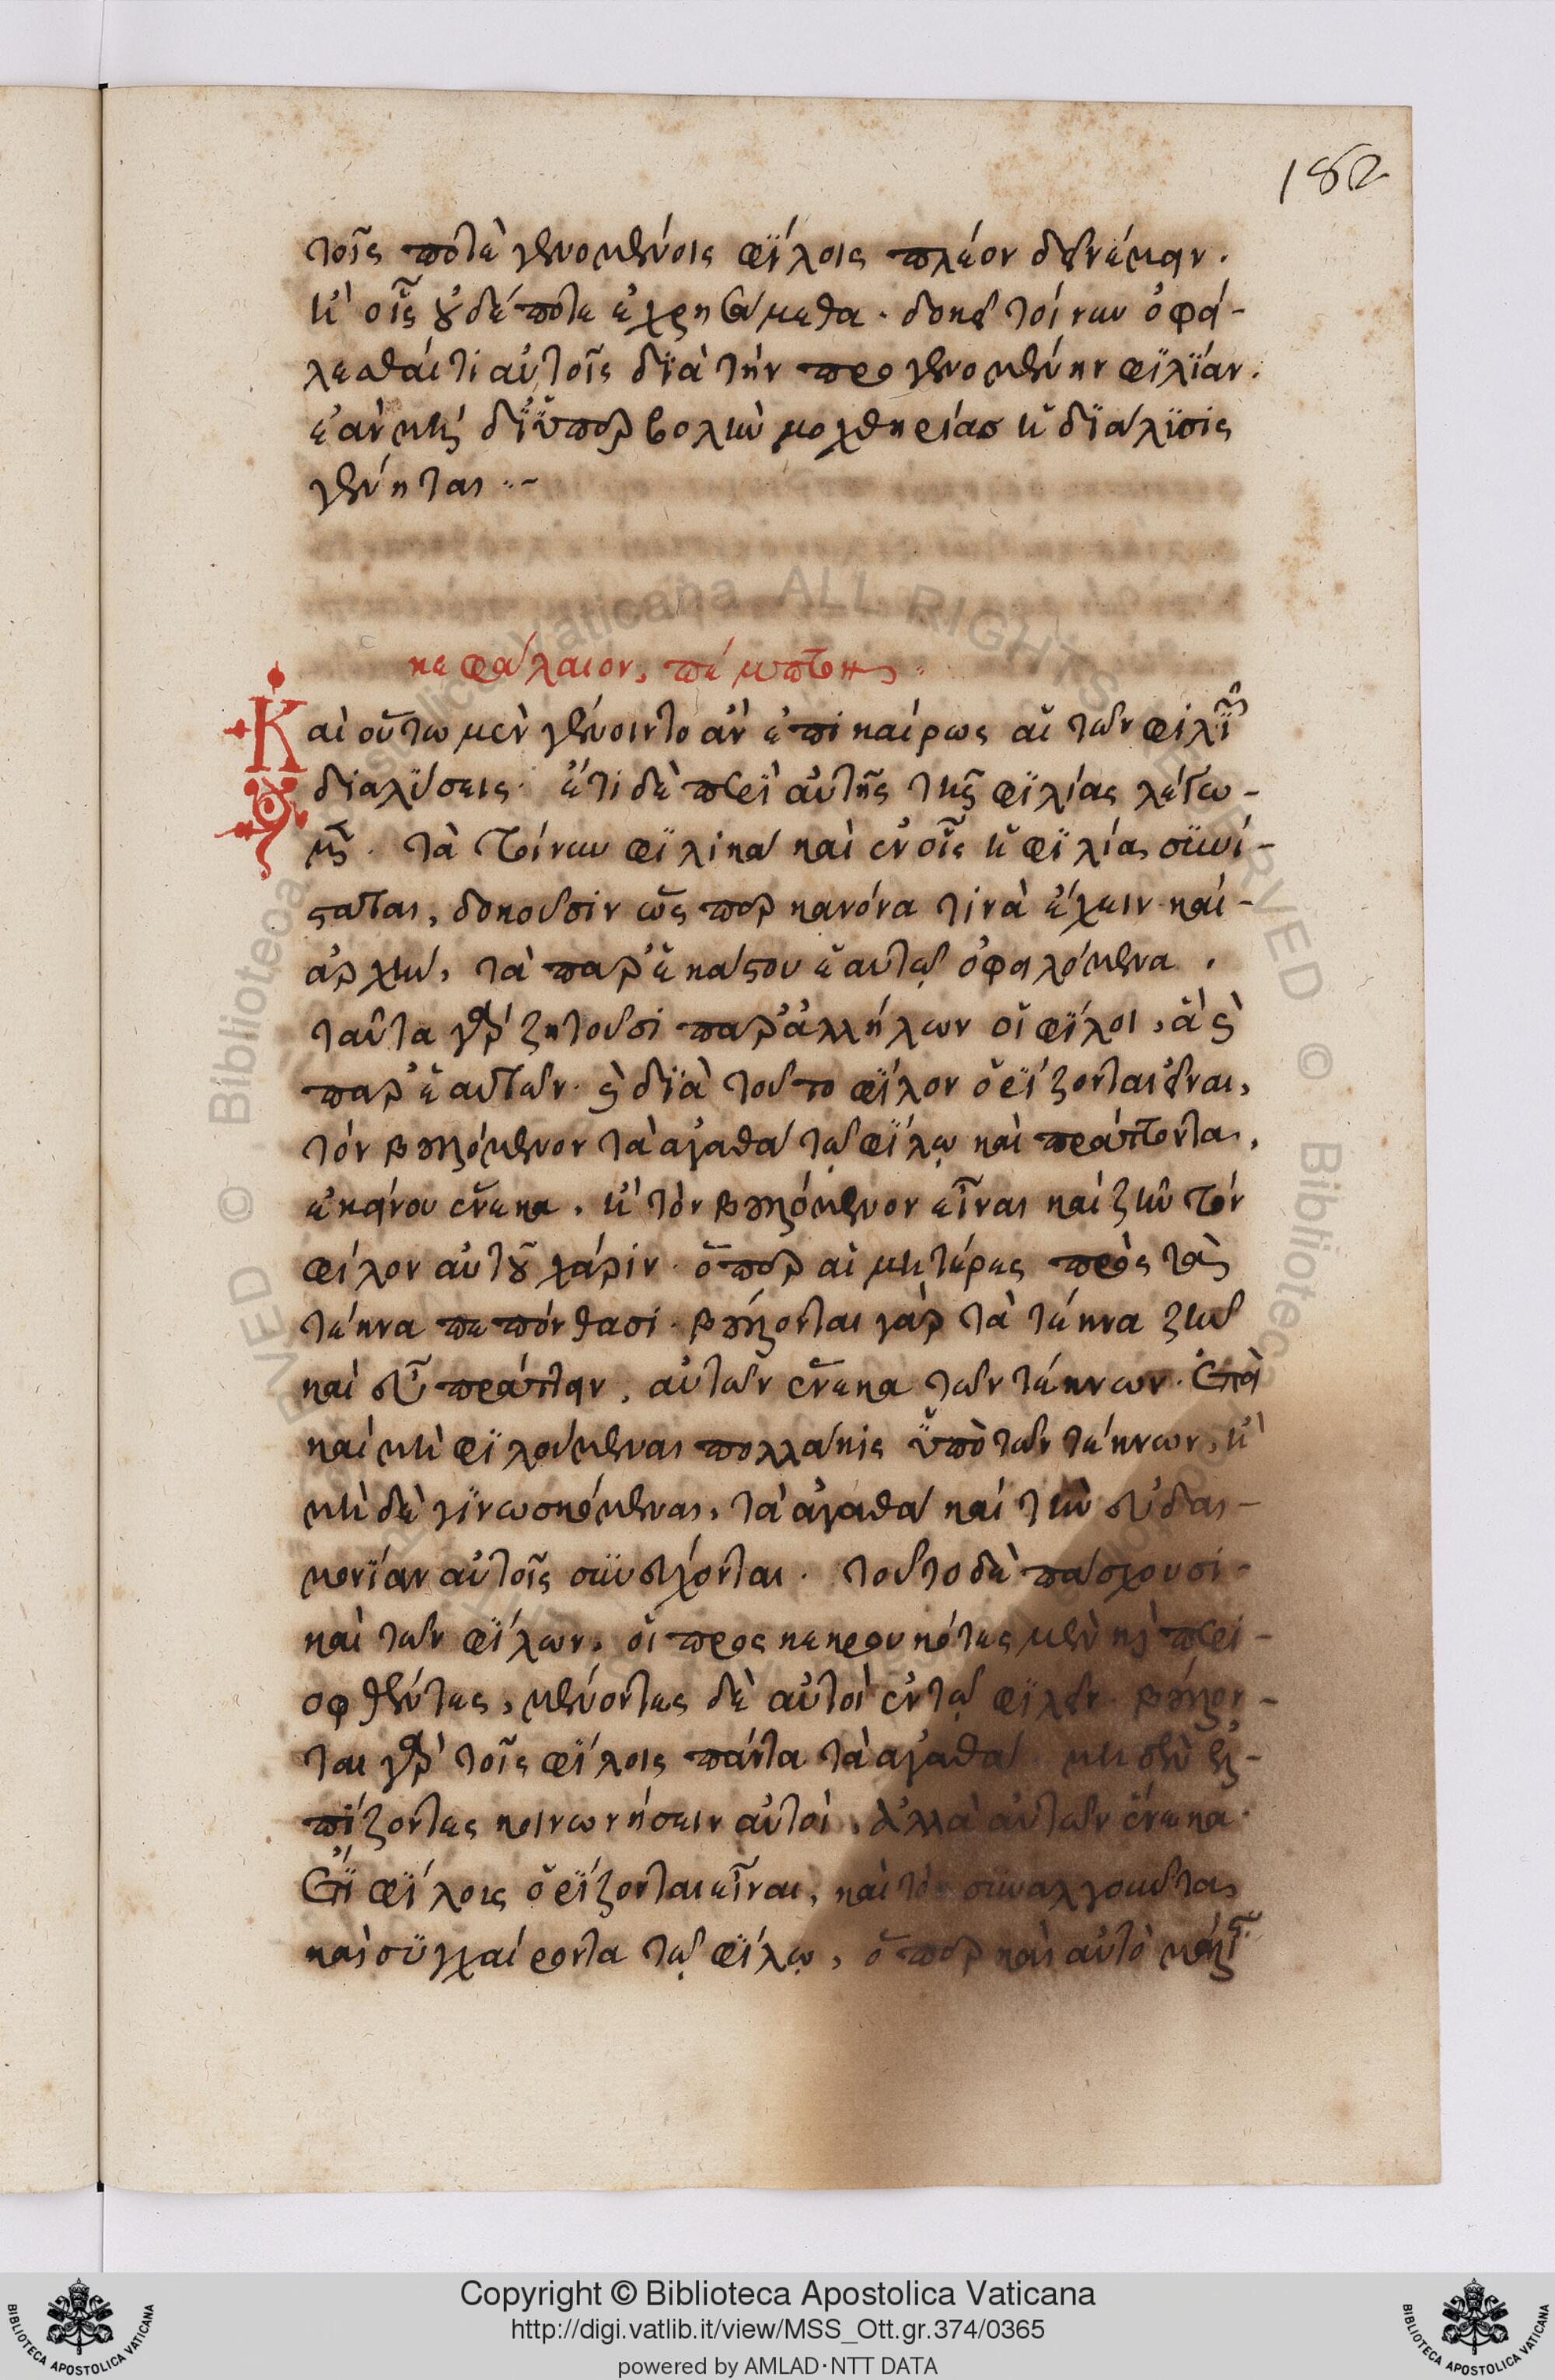 182
τοῖς ποτὲ γενομένοις φίλοις πλέον δὲ νέμειν.
ἢ οἷς οὐδέποτε ἐχρησάμεθα. δοκεῖ τοίνυν ὀφεί-
λεσθαί τι αὐτοῖς διὰ τὴν προγενομένην φιλίαν.
ἐὰν μὴ δι' ὑπερβολὴν μοχθηρίας ἡ διάλϋσις
γένηται
κεφάλαιον, πέμπτον
Καὶ οὕτω μὲν γένοιντο ἂν ἐπικαίρως αἱ τῶν φιλιῶν
διαλύσεις. ἔτι δὲ περὶ αὐτῆς τῆς φιλίας λέγω-
μεν. τὰ τοίνυν φιλικὰ καὶ ἐν οἷς ἡ φιλία συνί-
σταται, δοκοῦσιν ὥσπερ κανόνα τινὰ ἔχειν καὶ
ἀρχὴν, τὰ παρ' ἑκάστου ἑαυτῷ ὀφειλόμενα.
ταῦτα γὰρ ζητοῦσι παρ' ἀλλήλων οἱ φίλοι, ἃ καὶ
παρ' ἑαυτῶν. καὶ διὰ τοῦτο φίλον ὁρίζονται εἶναι,
τὸν βουλόμενον τὰ ἀγαθὰ τῷ φίλῳ καὶ πράττοντα,
ἐκείνου ἕνεκα. ἢ τὸν βουλόμενον εἶναι καὶ ζῆν τὸν
φίλον αὐτοῦ χάριν. ὅπερ αἱ μητέρες πρὸς τὰ
τέκνα πεπόνθασι. βούλονται γὰρ τὰ τέκνα ζῆν
καὶ εὖ πράττειν, αὐτῶν ἕνεκα τῶν τέκνων. ἐπεὶ
καὶ μὴ φιλούμεναι πολλάκις ὑπὸ τῶν τέκνων, ἢ
μηδὲ γινωσκόμεναι, τὰ ἀγαθὰ καὶ τὴν εὐδαι-
μονίαν αὐτοῖς συνεύχονται. τοῦτο δὲ πάσχουσι
καὶ τῶν φίλων, οἱ προσκεκρουκότες μὲν καὶ περι-
οφθέντες, μένοντες δὲ αὐτοὶ ἐν τῷ φιλεῖν. βούλον-
ται γὰρ τοῖς φίλοις πάντα τὰ ἀγαθὰ μηδὲν ἐλ-
πίζοντες κοινωνήσειν αὐτοί, ἀλλὰ αὐτῶν ἕνεκα.
ἔτι φίλοις ὁρίζονται εἶναι, καὶ τὸν συναλγοῦντα
καὶ συγχαίροντα τῷ φίλῳ, ὅπερ καὶ αὐτὸ
Copyright © Biblioteca Apostolica Vaticana
http://digi.vatlib.it/view/MSS_Ott.gr.374/0365
powered by AMLAD·NTT DATA
BIBLIOTECA APOSTOLICA VATICANA
BIBLIOTECA APOSTOLICA VATICANA